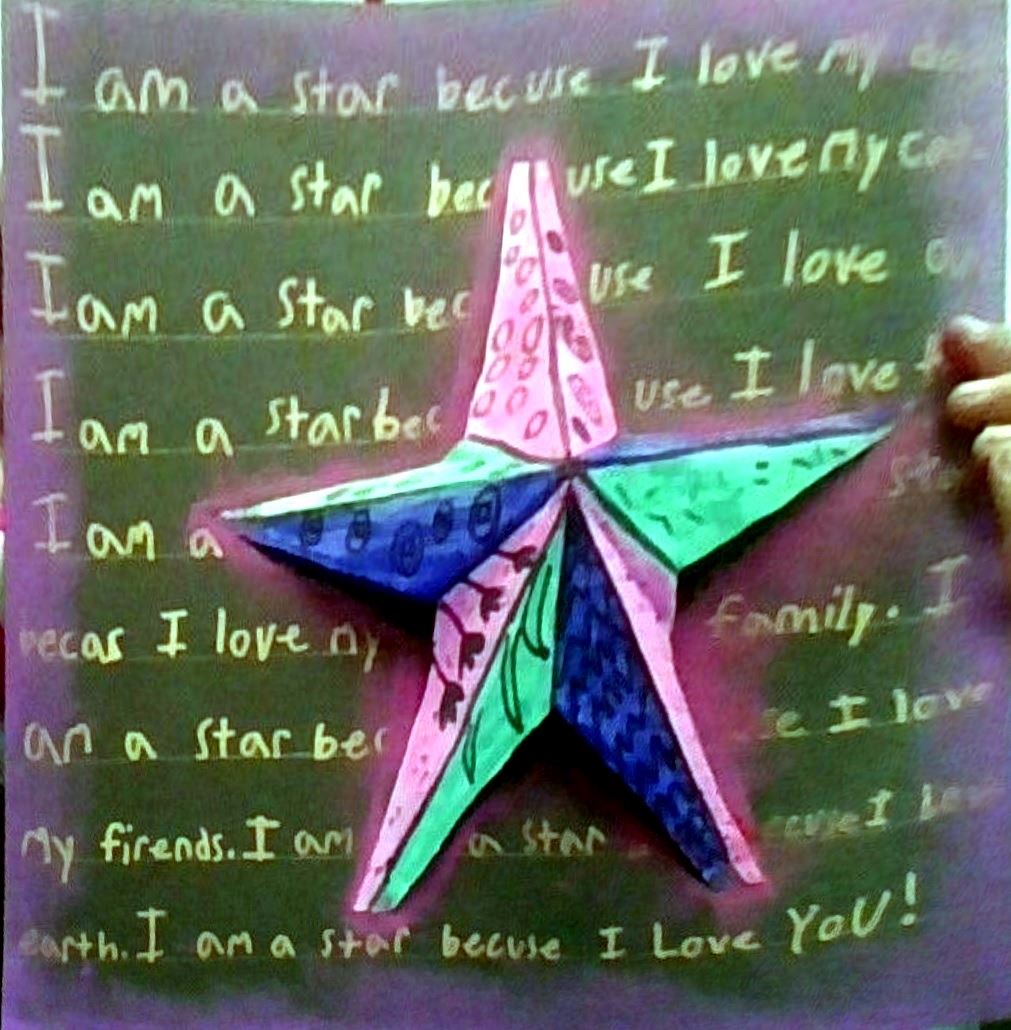 I am a star becuse I love my
I am a star bec use I love My
I am a star bec use I love
I am a star bec use I love
I am a
becas I love my family. I
an a star bec e I love
My firends. I am a star ecuse I
earth. I am a star becuse I Love YoU!